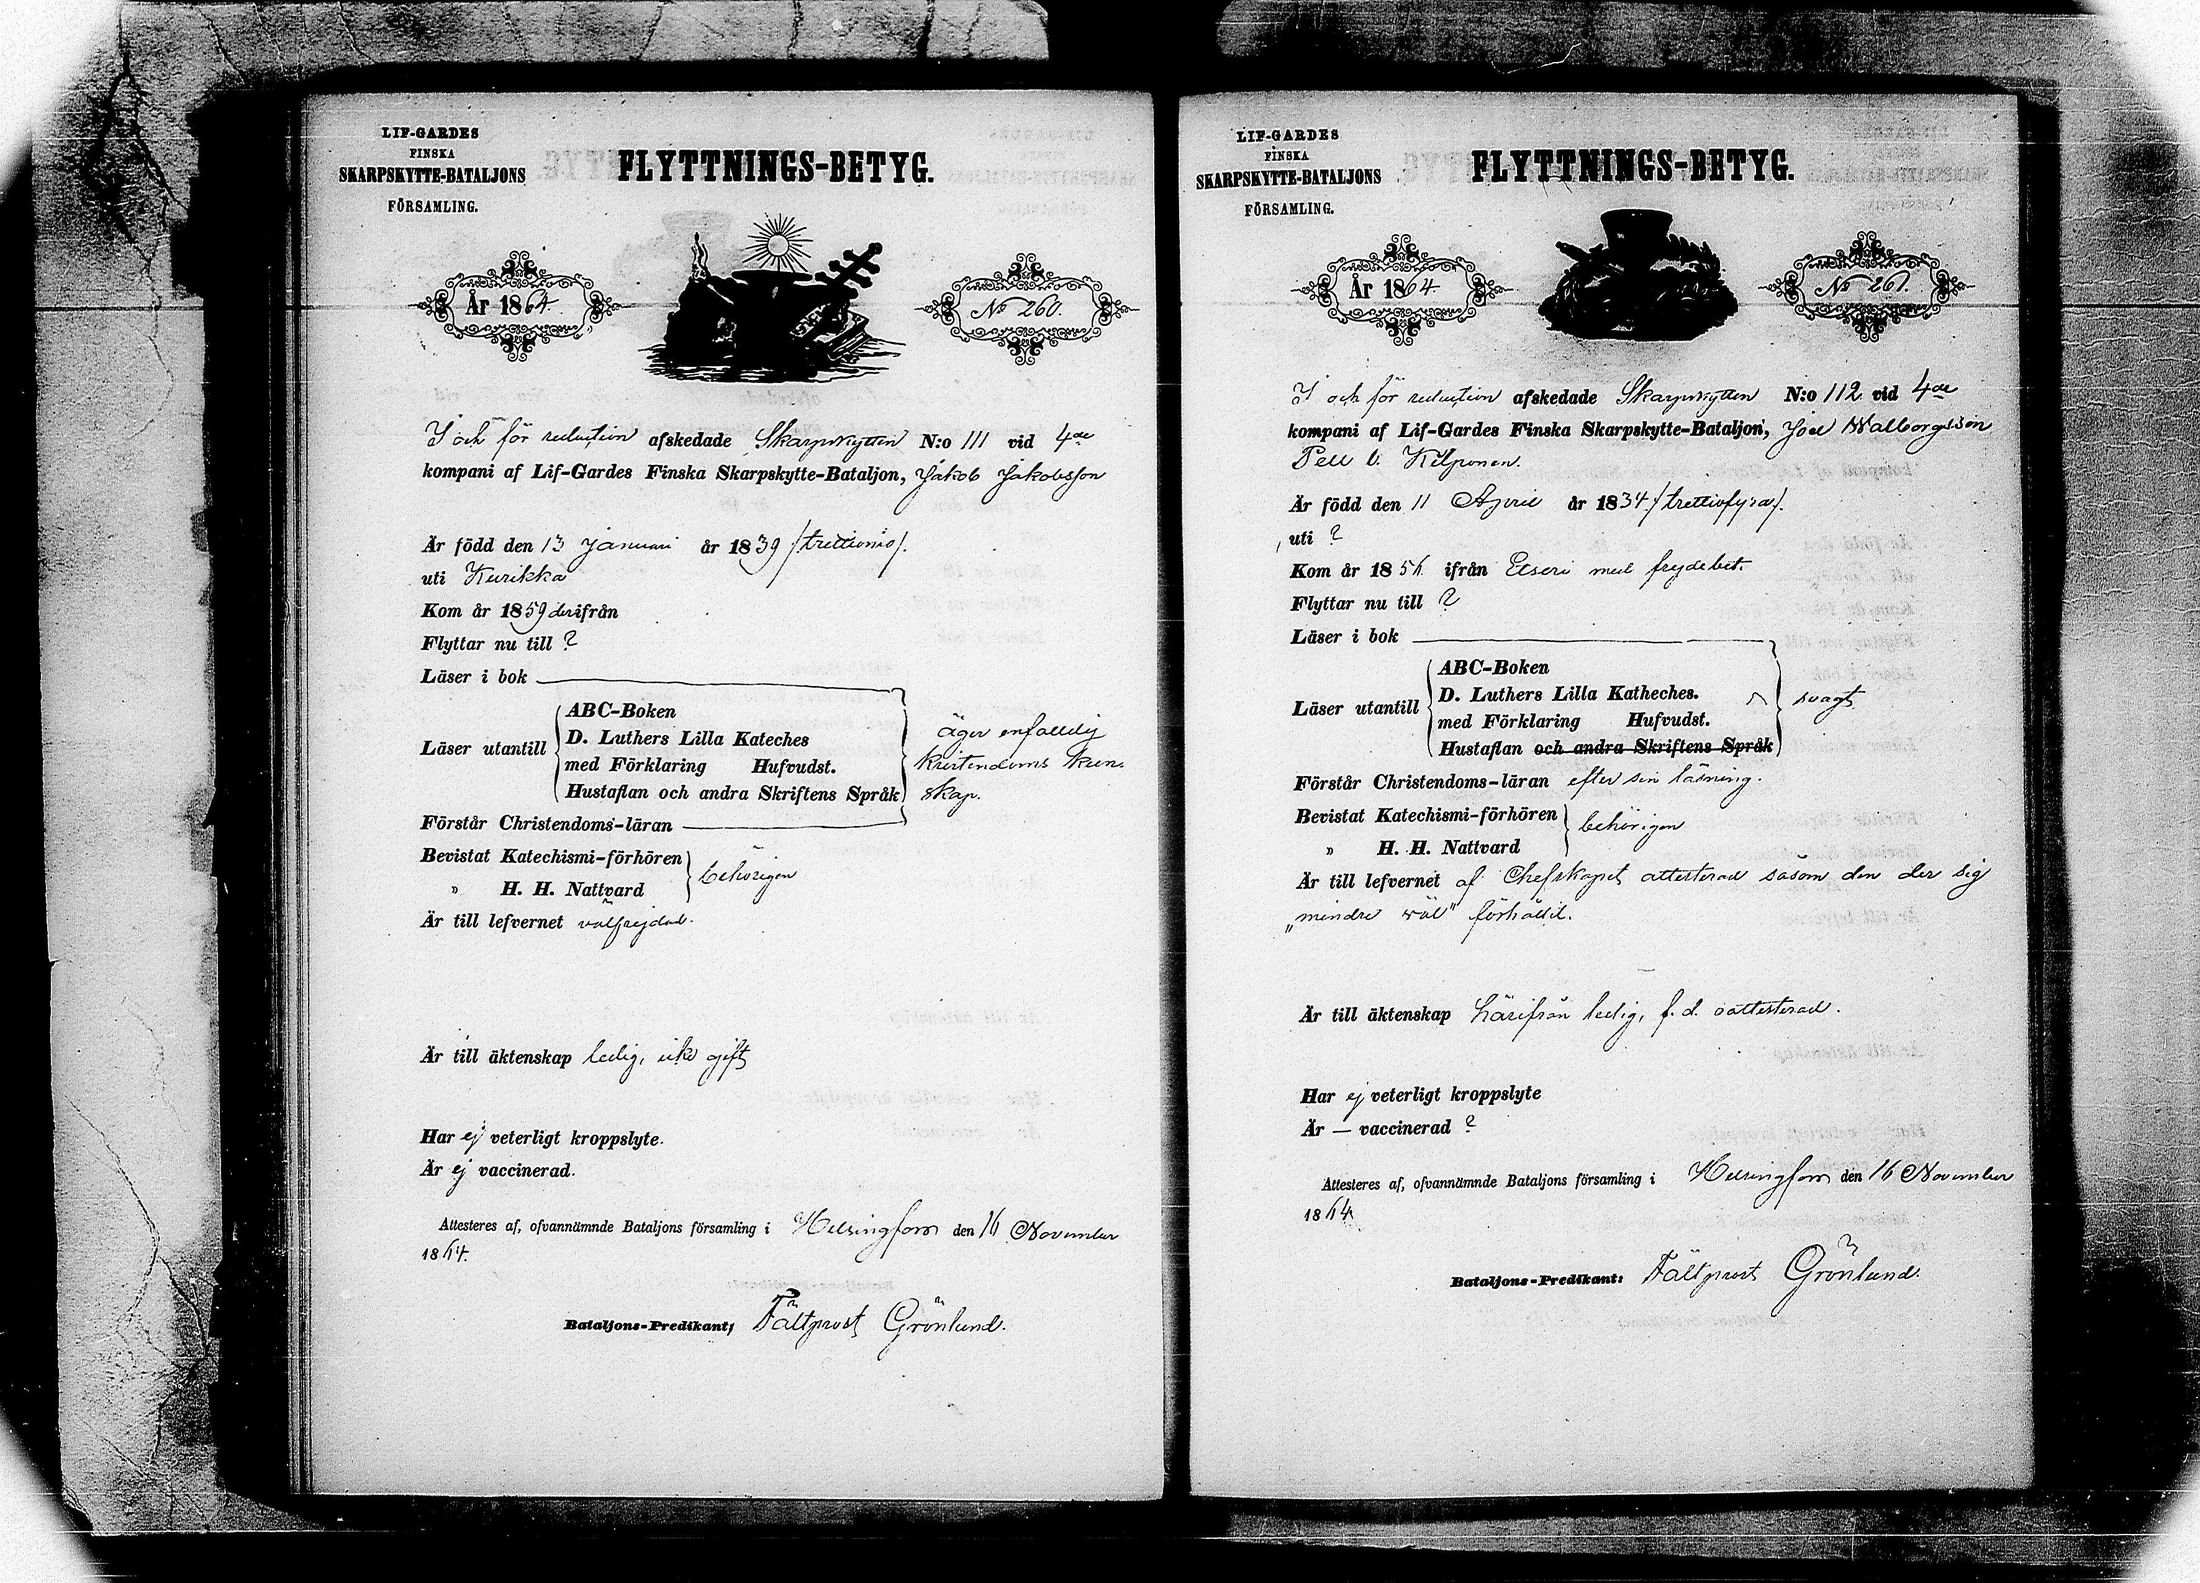 LIF-GARDES
FINSKA
SKARPSKYTTE-BATALJONS
FÖRSAMLING.
FLYTTNINGS-BETYG.
År 1864.
No 260.
I och för reduction afskedade Skarpskytten N:o 111 vid 4de
kompani af Lif-Gardes Finska Skarpskytte-Bataljon, Jakob Jakobsson
Är född den 13 Januari år 1839 /trettionio/.
uti Kurikka
Kom år 1859 derifrån
Flyttar nu till ?
Läser i bok
Läser utantill
ABC-Boken
D. Luthers Lilla Kateches
med Förklaring Hufvudst.
Hustaflan och andra Skriftens Språk
äger enfaldig
kristendoms kun-
skap.
Förstår Christendoms-läran
Bevistat Katechismi-förhören
" H. H. Nattvard
behörigen
Är till lefvernet välfrejdad.
Är till äktenskap ledig, icke gift
Har ej veterligt kroppslyte.
Är ej vaccinerad.
Attesteres af, ofvannämnde Bataljons församling i Helsingfors den 16 November
1864.
Bataljons-Predikant; Fältprost Grönlund.
LIF-GARDES
FINSKA
SKARPSKYTTE-BATALJONS
FÖRSAMLING.
FLYTTNINGS-BETYG.
År 1864
No 261.
I och för reduction afskedade Skarpskytten N:o 112 vid 4de
kompani af Lif-Gardes Finska Skarpskytte-Bataljon, Joel Walborgsson
Pell l. Kilponen.
Är född den 11 April år 1834 /trettiofyra/.
uti ?
Kom år 1856 ifrån Etseri med frejdebet.
Flyttar nu till ?
Läser i bok
Läser utantill
ABC-Boken
D. Luthers Lilla Katheches.
med Förklaring Hufvudst.
Hustaflan och andra Skriftens Språk
svagt
Förstår Christendoms-läran efter sin läsning.
Bevistat Katechismi-förhören
" H. H. Nattvard
behörigen
Är till lefvernet af Chefskapet attesterad såsom den der sig
"mindre wäl" förhållit.
Är till äktenskap härifrån ledig, f. d. oattesterad.
Har ej veterligt kroppslyte
Är — vaccinerad ?
Attesteres af, ofvannämnde Bataljons församling i Helsingfors den 16 November
1864
Bataljons-Predikant: Fältprost Grönlund.